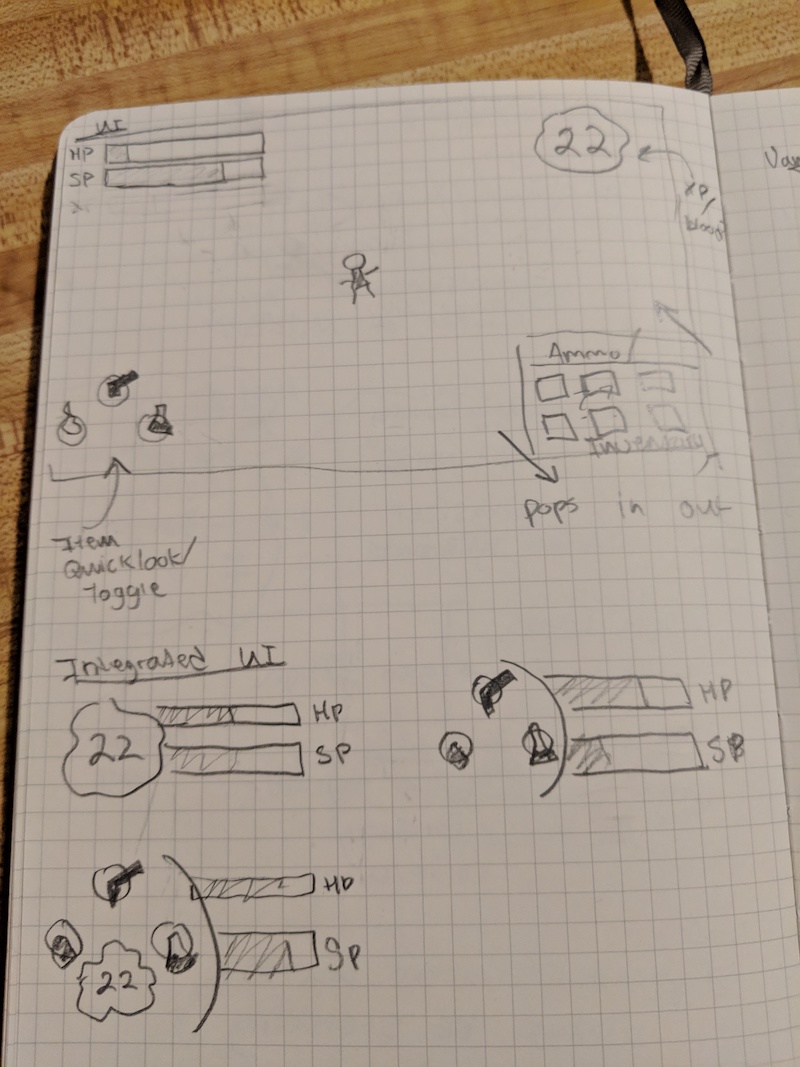 UI
HP
SP
22
XP/
blood
Ammo/
Inventory
pops in out
Item
Quicklook/
Toggle
Integrated UI
22
HP
SP
HP
SP
HP
22
SP